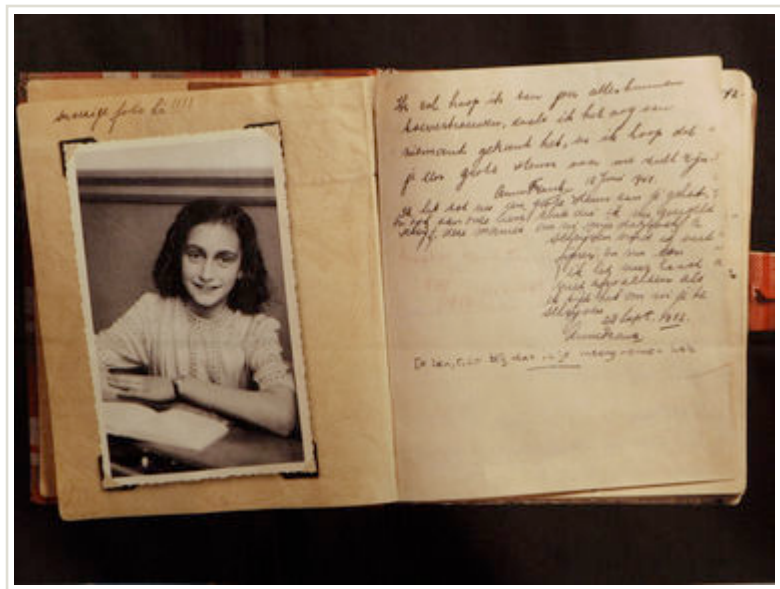 foto hè!!!!
Ik zal hoop ik aan jou alles kunnen
toevertrouwen, zoals ik het nog aan
niemand gekund heb, en ik hoop dat
je een grote steun aan me zult zijn
Anne Frank 12 Juni 1942.
Ik heb tot nu een grote steun aan je gehad,
die ik nu geregeld
schrijf, deze manier om in mijn dagboek te
schrijven vind ik veel
fijner en nu kan
ik het haast
niet afwachten als
ik tijd heb om in je te
schrijven
28 Sept. 1942.
Anne Frank
blij dat ik je meegenomen heb